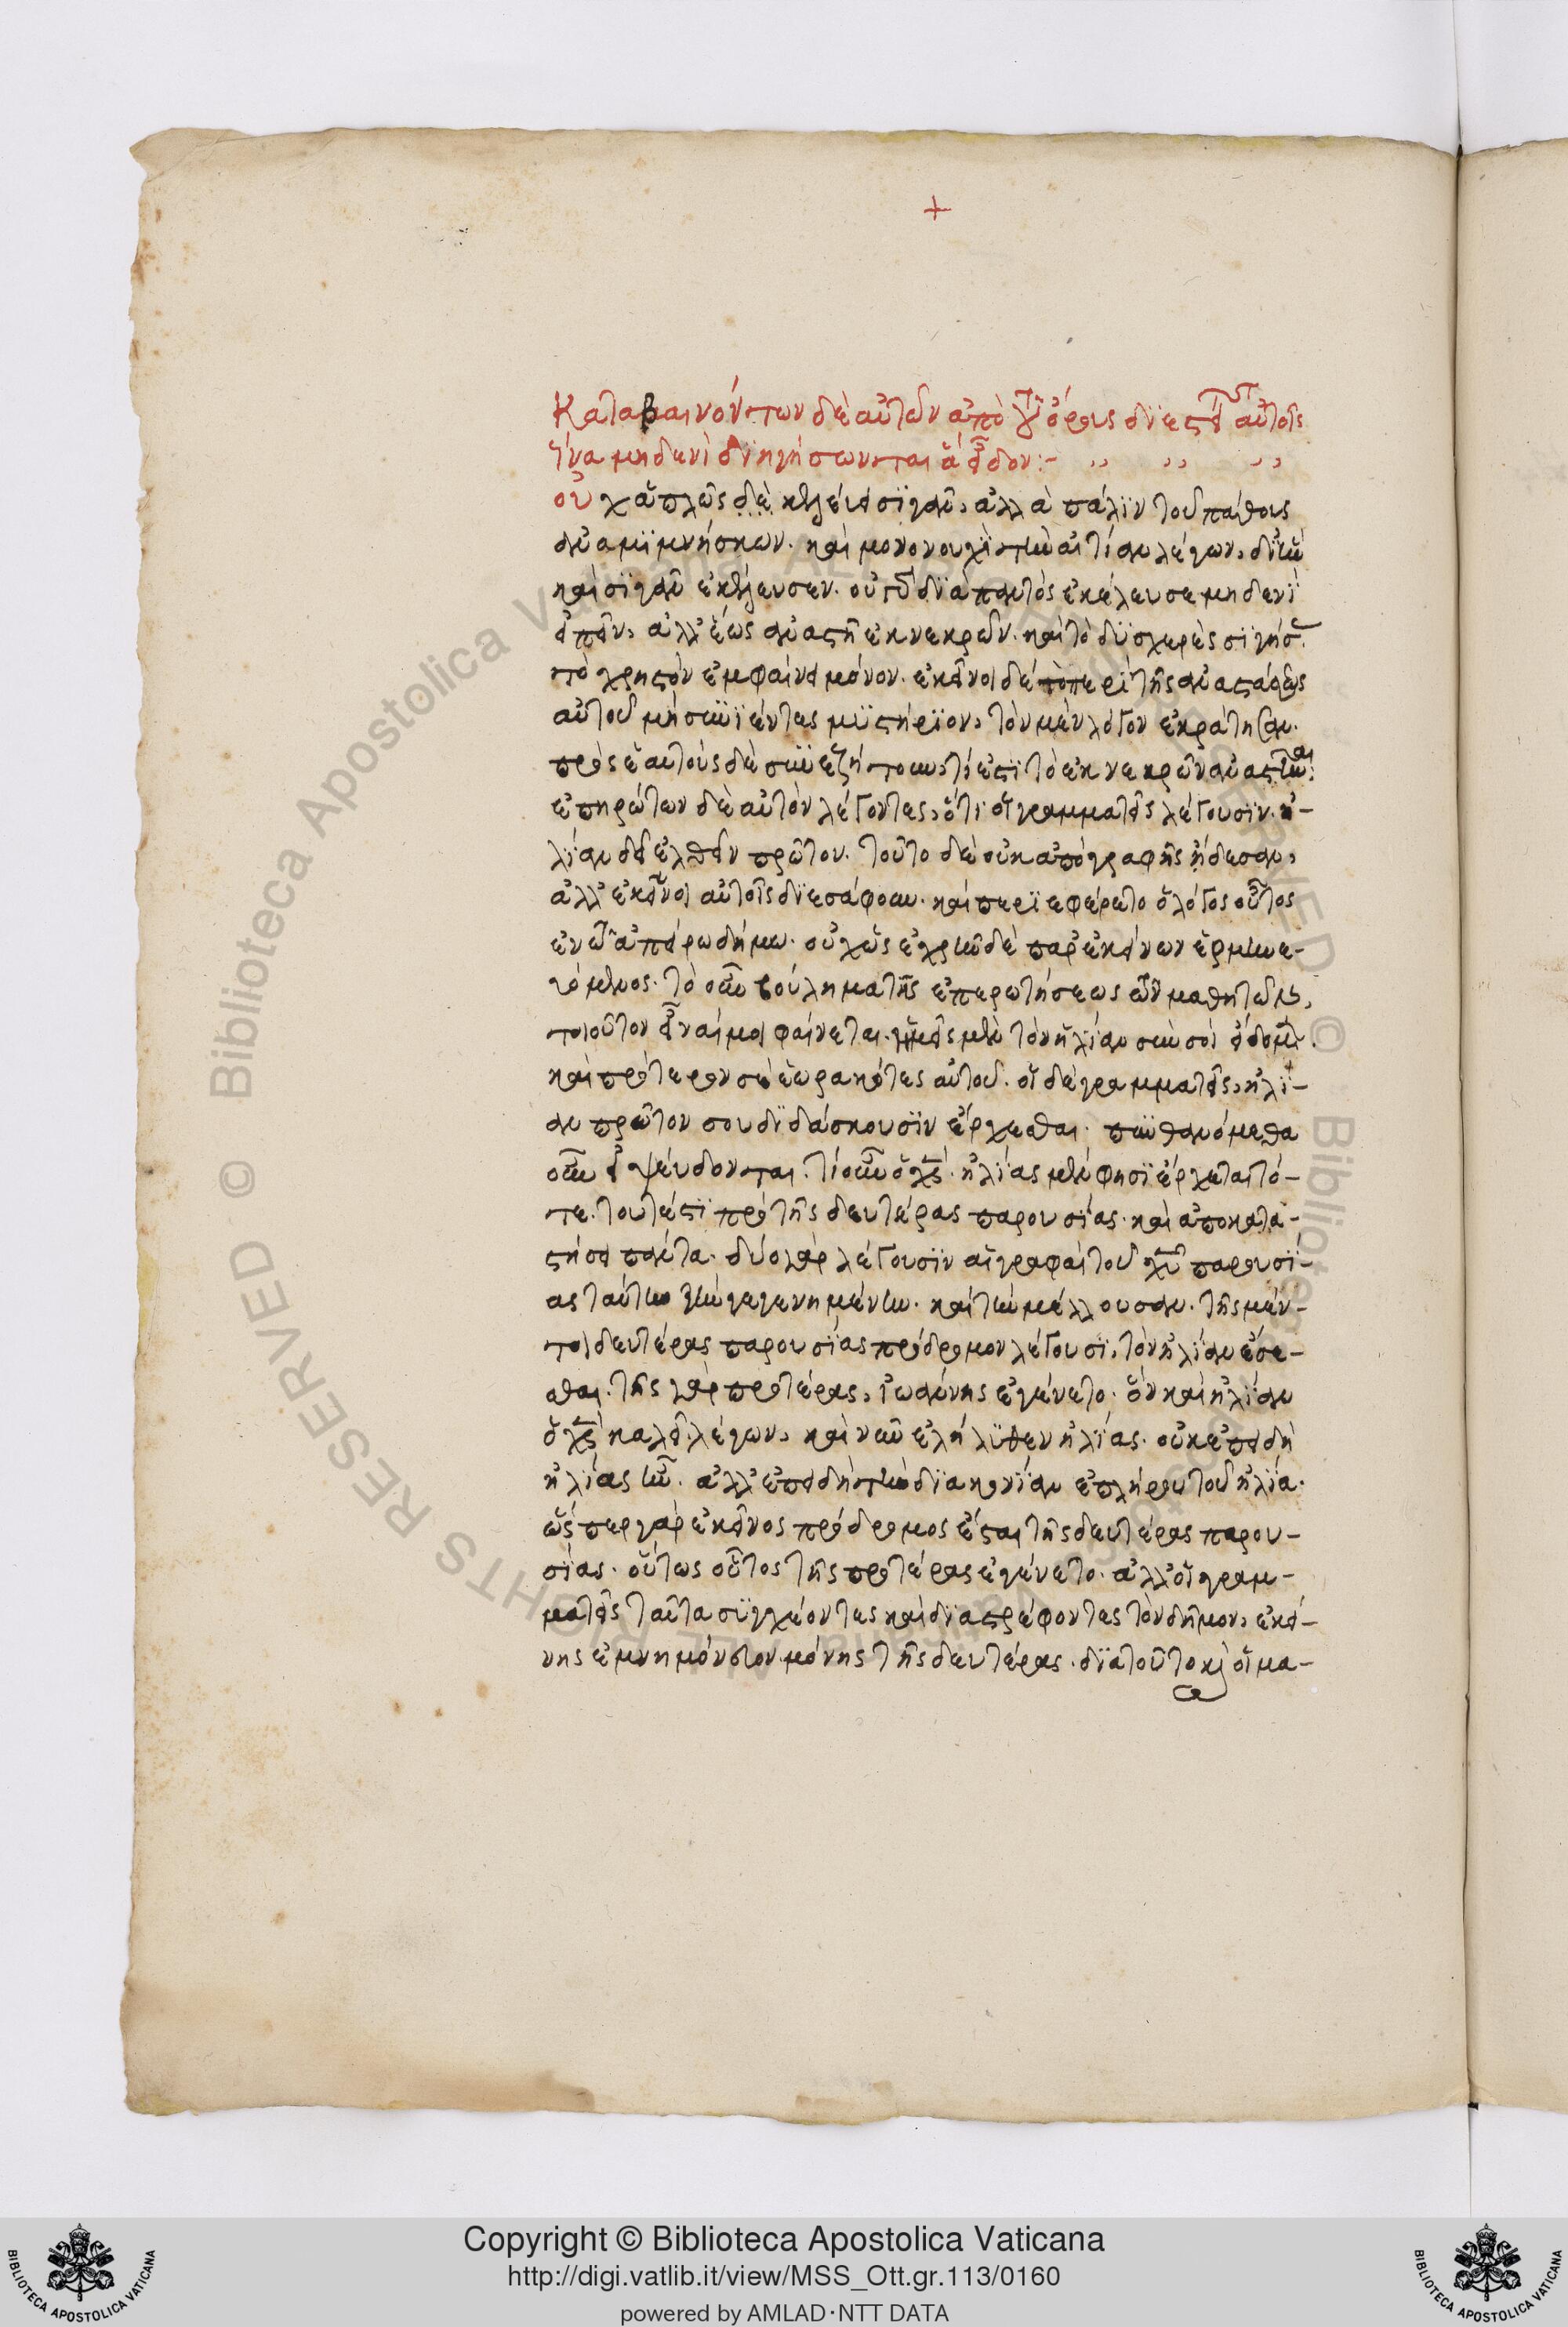 +
Καταβαινόντων δὲ αὐτῶν ἀπὸ τοῦ ὄρους διεστείλατο αὐτοῖς
ἵνα μηδενὶ διηγήσωνται ἃ εἶδον:-
οὐχ ἁπλῶς δὲ κελεύει σϊγᾶν, ἀλλὰ πάλϊν τοῦ πάθους
ἀναμϊμνήσκων. καὶ μονονουχὶ τὴν αἰτίαν λέγων, δι' ἣν
καὶ σϊγᾶν ἐκέλευσεν. οὐ γὰρ διὰ παντὸς ἐκέλευσε μηδενὶ
εἰπεῖν, ἀλλ' ἕως ἀναστῆ ἐκ νεκρῶν. καὶ τὸ δϋσχερὲς σϊγήσας
τὸ χρηστὸν ἐμφαίνει μόνον. ἐκεῖνοι δὲ τὸ περὶ τῆς ἀναστάσεως
αὐτοῦ μὴ συνϊέντες μϋστήριον, τὸν μὲν λόγον ἐκράτησαν.
πρὸς ἑαυτοὺς δὲ συνεζήτουν, τί ἐστι τὸ ἐκ νεκρῶν ἀναστῆναι:
ἐπηρώτων δὲ αὐτὸν λέγοντες, ὅτι οἱ γραμματεῖς λέγουσϊν. ἠ-
λίαν δεῖ ἐλθεῖν πρῶτον. τοῦτο δὲ οὐκ ἀπὸ γραφῆς ἤδεσαν,
ἀλλ' ἐκεῖνοι αὐτοῖς διεσάφουν. καὶ περιεφέρετο ὁ λόγος οὗτος
ἐν τῶ ἀπείρω δήμω. οὐχ ὡς ἐχρῆν δὲ παρ' ἐκείνων ἑρμηνευ-
όμενος. τὸ οὖν βούλημα τῆς ἐπερωτήσεως τῶν μαθητῶν,
τοιοῦτον εἶναί μοι φαίνεται. ἡμεῖς μὲν τὸν ἠλίαν σὺν σοὶ εἴδομεν.
καὶ πρότερον σὲ ἑωρακότες αὐτοῦ. οἱ δὲ γραμματεῖς, ἠλί-
αν πρῶτον σου διδάσκουσϊν ἔρχεσθαι. πυνθανόμεθα
οὖν εἰ ψεύδονται. τί οὖν ὁ χς. ἠλίας μὲν φησϊ ἔρχεται τό-
τε. τουτέστι πρὸ τῆς δευτέρας παρουσίας. καὶ ἀποκατα-
στήσει πάντα. δύο γὰρ λέγουσϊν αἱ γραφαὶ τοῦ χυ παρουσί-
ας ταύτην τὴν γεγενημένην. καὶ τὴν μέλλουσαν. τῆς μέν-
τοι δευτέρας παρουσίας πρόδρομον λέγουσϊ, τὸν ἠλίαν ἔσε-
σθαι. τῆς γὰρ προτέρας, ἰωάννης ἐγένετο. ὃν καὶ ἠλίαν
ὁ χς καλεῖ λέγων, καὶ νῦν ἐλήλϋθεν ἠλίας. οὐκ ἐπειδὴ
ἠλίας ἦν. ἀλλ' ἐπειδὴ τὴν διακονίαν ἐπλήρου τοῦ ἠλία.
ὥσπερ γὰρ ἐκεῖνος πρόδρομος ἔσται τῆς δευτέρας παρου-
σίας. οὕτως οὗτος τῆς προτέρας ἐγένετο. ἀλλ' οἱ γραμ-
ματεῖς ταῦτα συγχέοντες καὶ διαστρέφοντες τὸν δῆμον, ἐκεί-
νης ἐμνημόνευον μόνης τῆς δευτέρας. διὰ τοῦτο κὶ οἱ μα-
Copyright © Biblioteca Apostolica Vaticana
http://digi.vatlib.it/view/MSS_Ott.gr.113/0160
powered by AMLAD·NTT DATA